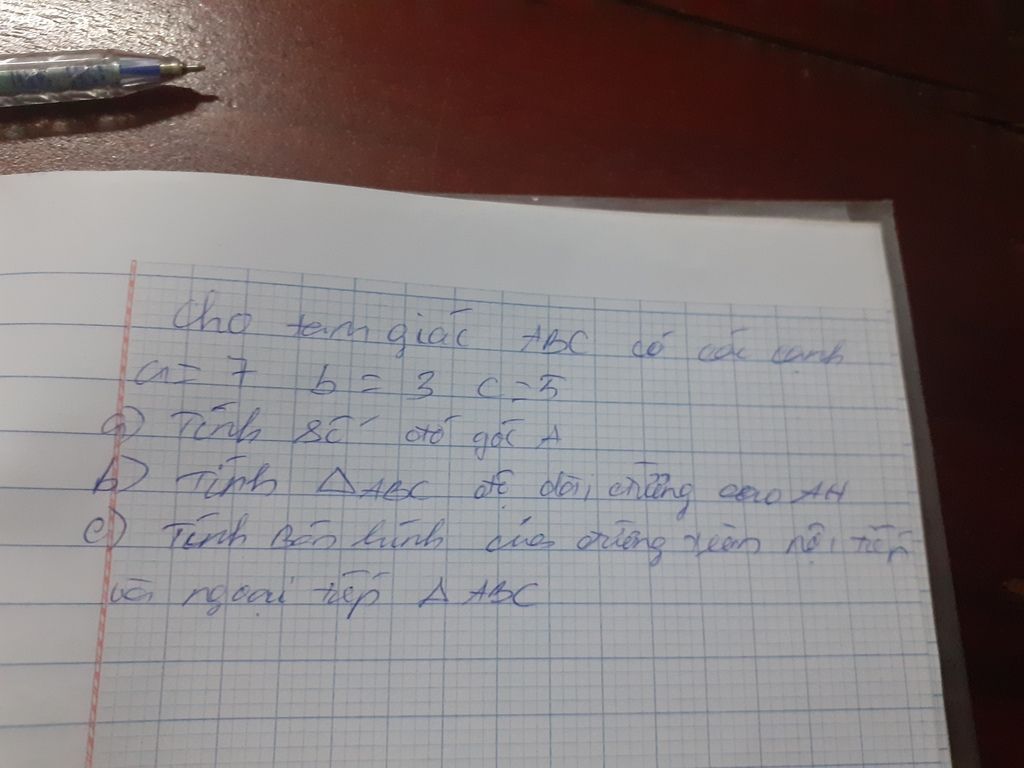 Cho tam giác ABC có các cạnh
a = 7 b = 3 c = 5
a) Tính số đó góc A
b) Tính △ABC độ dài, đường cao AH
c) Tính Bán kính của đường tròn nội tiếp
và ngoại tiếp △ ABC